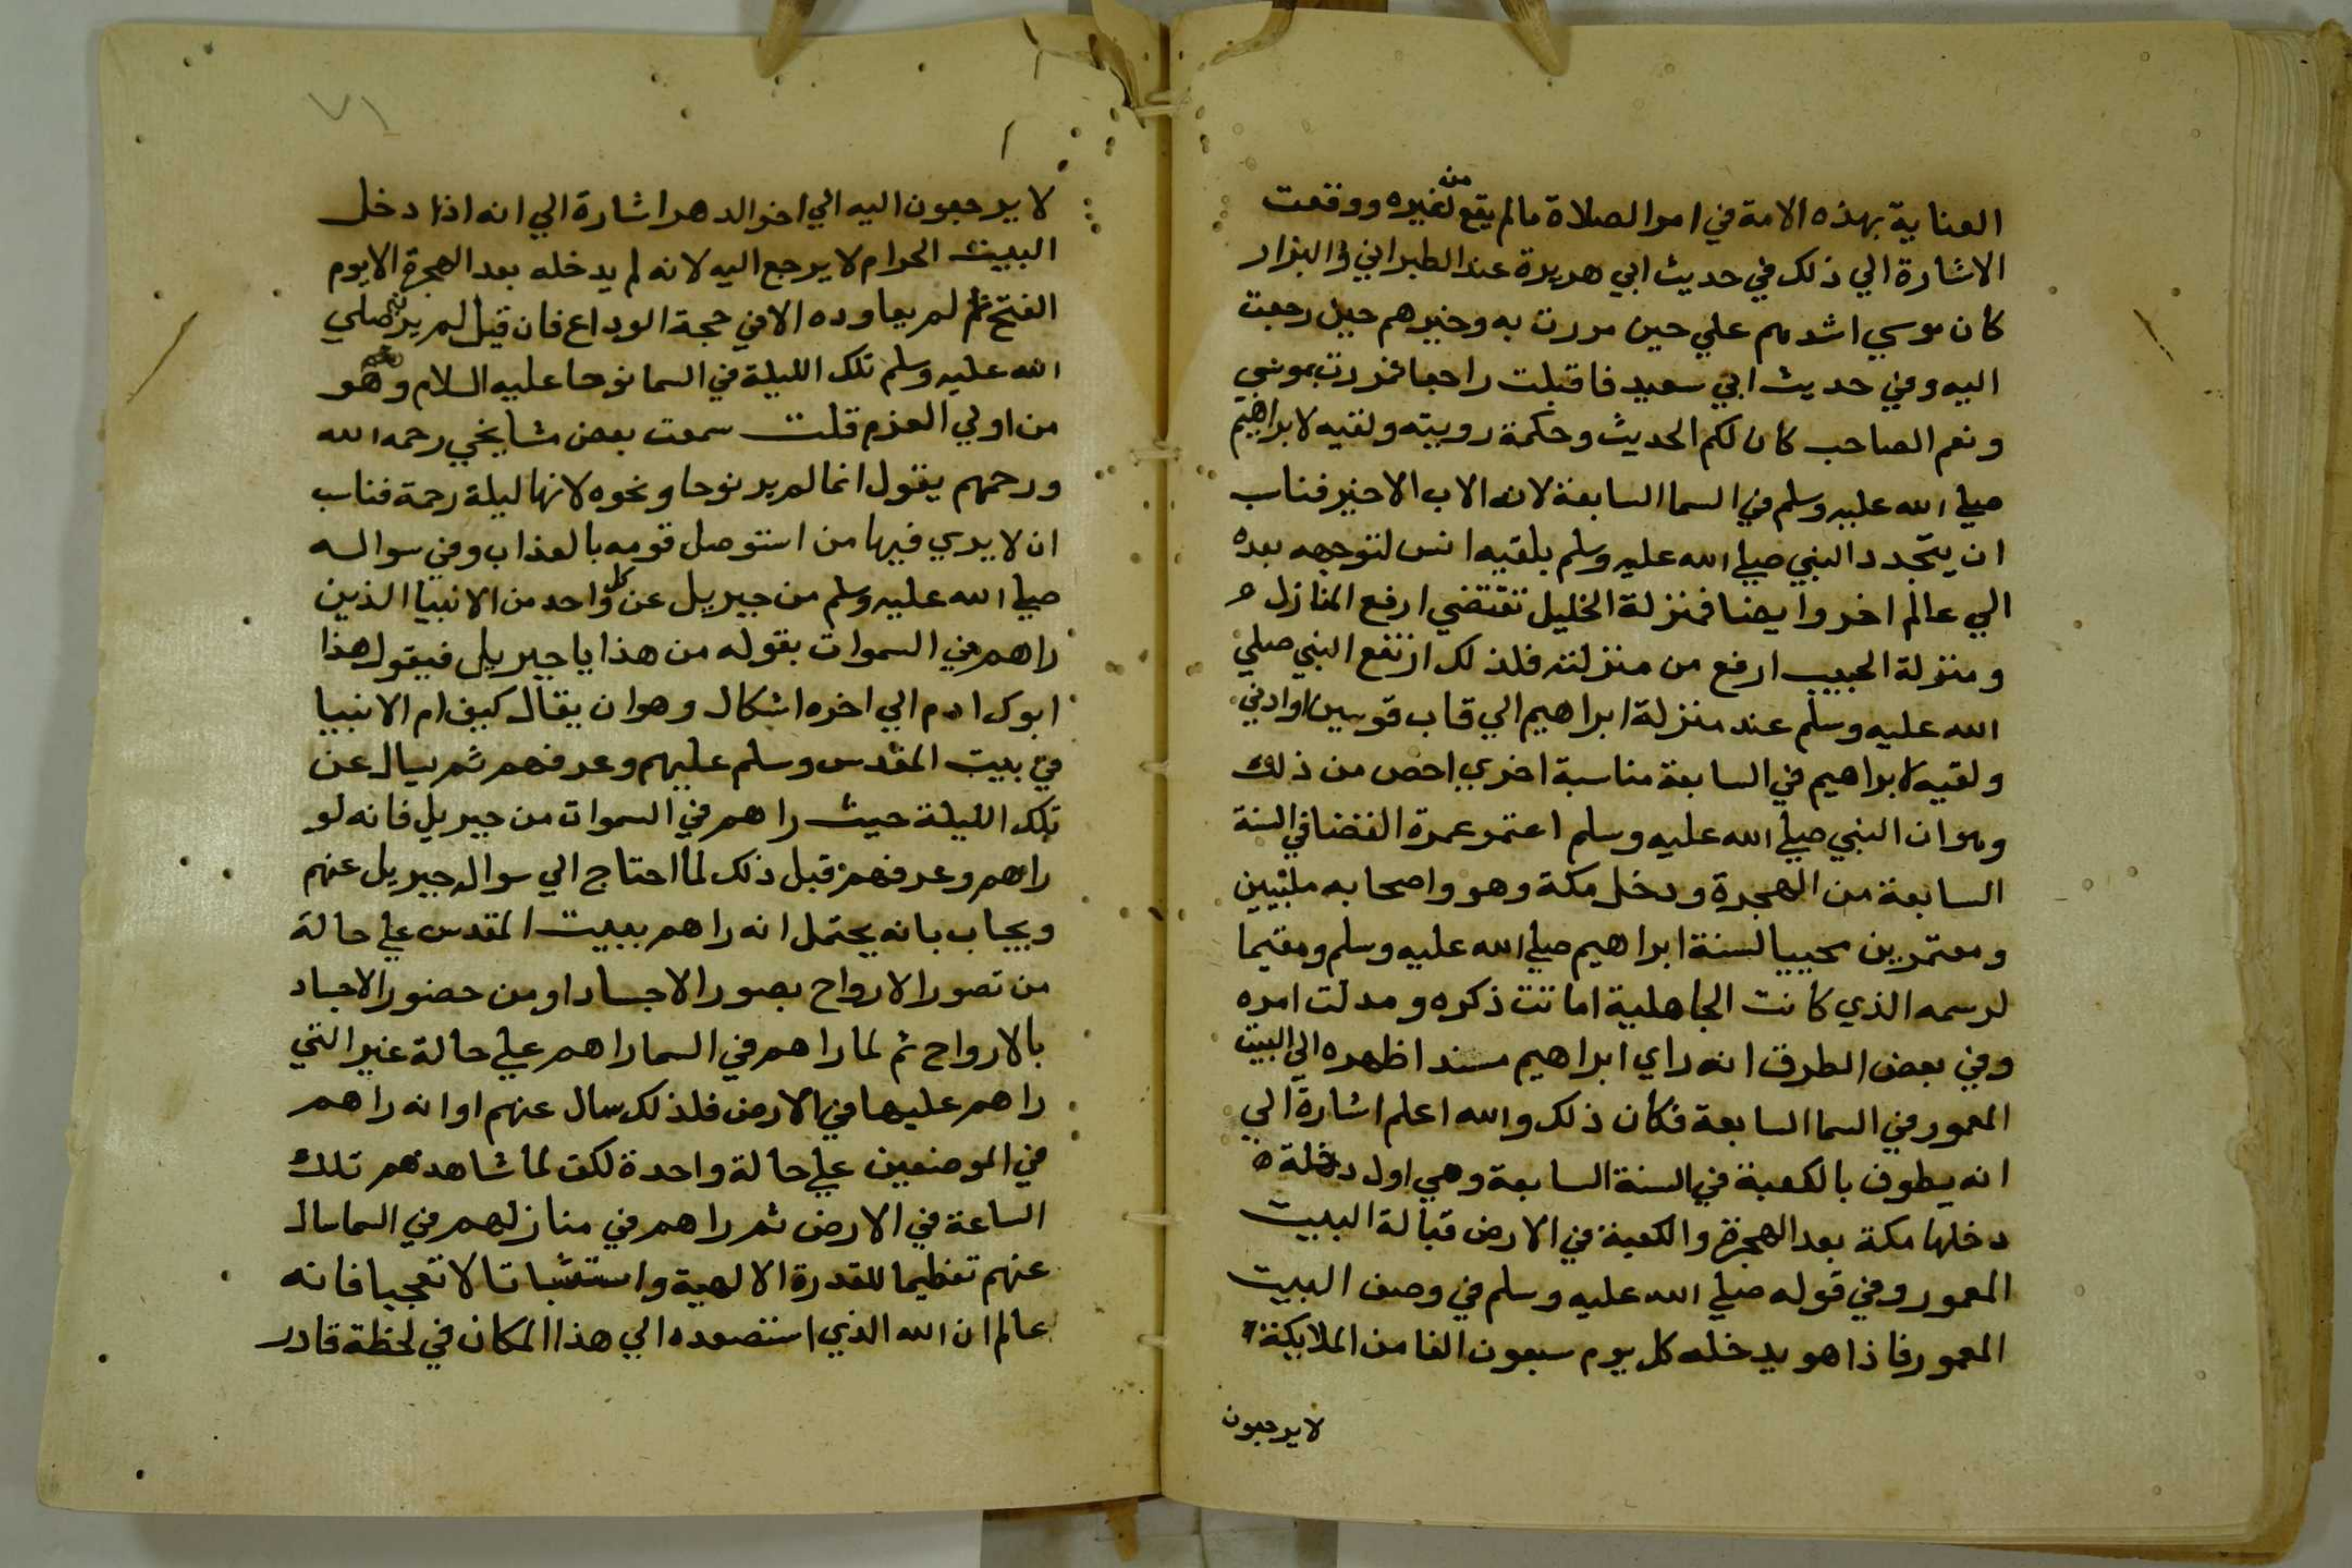 العناية بهذه الامة في امر الصلاة ما لم يقع من لغيره ووقعت
الاشارة الي ذلك في حديث ابي هريرة عند الطبراني والبزار
كان موسي اشدهم علي حين مررت به وخيرهم حين رجعت
اليه وفي حديث ابي سعيد فاقبلت راجعا فمررت بموسي
ونعم الصاحب كان لكم الحديث وحكمة رويته ولقيه لابراهيم
صلي الله عليه وسلم في السما السابعة لانه الاب الاخير فناسب
ان يتجدد النبي صلي الله عليه وسلم بلقيه انس لتوجهه بعده
الي عالم اخر وايضا فمنزلة الخليل تقتضي ارفع المنازل
ومنزلة الحبيب ارفع من منزلته فلذلك ارتفع النبي صلي
الله عليه وسلم عند منزلة ابراهيم الي قاب قوسين او ادني
ولقيه لابراهيم في السابعة مناسبة اخري اخص من ذلك
وهو ان النبي صلي الله عليه وسلم اعتمر عمرة القضا في السنة
السابعة من الهجرة ودخل مكة وهو واصحابه ملبيين
ومعتمرين محييا لسنة ابراهيم صلي الله عليه وسلم ومقيما
لرسمه الذي كانت الجاهلية اماتت ذكره ومدلت امره
وفي بعض الطرق انه راي ابراهيم مسندا ظهره الي البيت
المعمور في السما السابعة فكان ذلك والله اعلم اشارة الي
انه يطوف بالكعبة في السنة السابعة وهي اول دخلة
دخلها مكة بعد الهجرة والكعبة في الارض قبالة البيت
المعمور وفي قوله صلي الله عليه وسلم في وصف البيت
المعمور فاذا هو يدخله كل يوم سبعون الفا من الملايكة
لا يرجعون
٧١
لا يرجعون اليه الي اخر الدهر اشارة الي انه اذا دخل
البيت الحرام لا يرجع اليه لانه لم يدخله بعد الهجرة الا يوم
الفتح ثم لم يعاوده الا في حجة الوداع فان قيل لم ير النبي صلي
الله عليه وسلم تلك الليلة في السما نوحا عليه السلام وهو
من اولي العزم قلت سمعت بعض مشايخي رحمه الله
ورحمهم يقول انما لم ير نوحا ونحوه لانها ليلة رحمة فناسب
ان لا يري فيها من استوصل قومه بالعذاب وفي سواله
صلي الله عليه وسلم من جبريل عن كل واحد من الانبيا الذين
راهم في السموات بقوله من هذا يا جبريل فيقول هذا
ابوك ادم الي اخره اشكال وهو ان يقال كيف ام الانبيا
في بيت المقدس وسلم عليهم وعرفهم ثم يسال عن
تلك الليلة حيث راهم في السموات من جبريل فانه لو
راهم وعرفهم قبل ذلك لما احتاج الي سوال جبريل عنهم
ويجاب بانه يحتمل انه راهم ببيت المقدس علي حالة
من تصور الارواح بصور الاجساد او من حضور الاجساد
بالارواح ثم لما راهم في السما راهم علي حالة غير التي
راهم عليها في الارض فلذلك سال عنهم او انه راهم
في الموضعين علي حالة واحدة لكن لما شاهدهم تلك
الساعة في الارض ثم راهم في منازلهم في السما سال
عنهم تعظيما للقدرة الالهية واستثباتا لا تعجبا فانه
عالم ان الله الذي استصعده الي هذا المكان في لحظة قادر